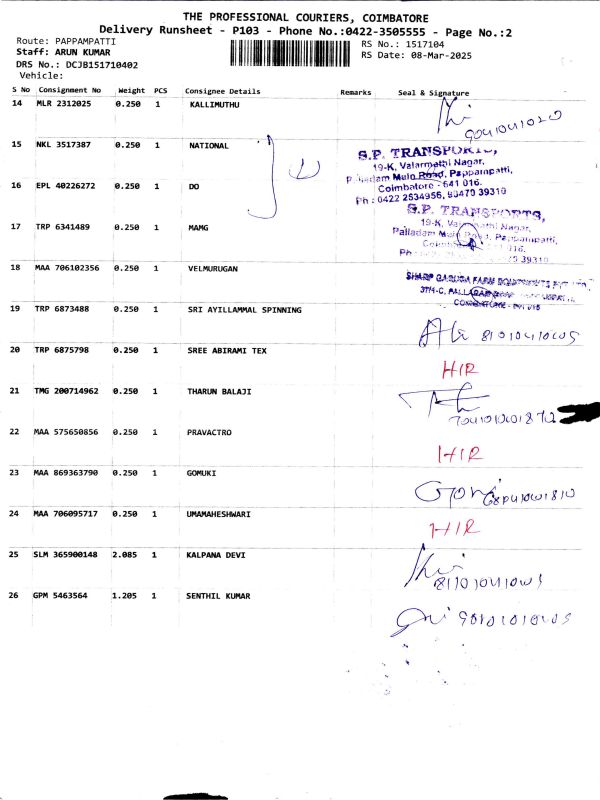 THE PROFESSIONAL COURIERS, COIMBATORE
Delivery Runsheet - P103 - Phone No.:0422-3505555 - Page No.:2
Route: PAPPAMPATTI
RS No.: 1517104
Staff: ARUN KUMAR
RS Date: 08-Mar-2025
DRS No.: DCJB151710402
Vehicle:
S No Consignment No Weight PCS Consignee Details Remarks Seal & Signature
14 MLR 2312025 0.250 1 KALLIMUTHU
15 NKL 3517387 0.250 1 NATIONAL
S.P. TRANSPORTS,
19-K, Valarmathi Nagar,
Palladam Main Road, Pappampatti,
16 EPL 40226272 0.250 1 DO
Coimbatore - 641 016.
Ph : 0422 2634956, 93470 39310
S.P. TRANSPORTS,
17 TRP 6341489 0.250 1 MAMG
19-K, Valarmathi Nagar,
Palladam Main Road, Pappampatti,
18 MAA 706102356 0.250 1 VELMURUGAN
19 TRP 6873488 0.250 1 SRI AYILLAMMAL SPINNING
20 TRP 6875798 0.250 1 SREE ABIRAMI TEX
HIR
21 TMG 200714962 0.250 1 THARUN BALAJI
22 MAA 575650856 0.250 1 PRAVACTRO
HIR
23 MAA 869363790 0.250 1 GOMUKI
24 MAA 706095717 0.250 1 UMAMAHESHWARI
HIR
25 SLM 365900148 2.085 1 KALPANA DEVI
26 GPM 5463564 1.205 1 SENTHIL KUMAR